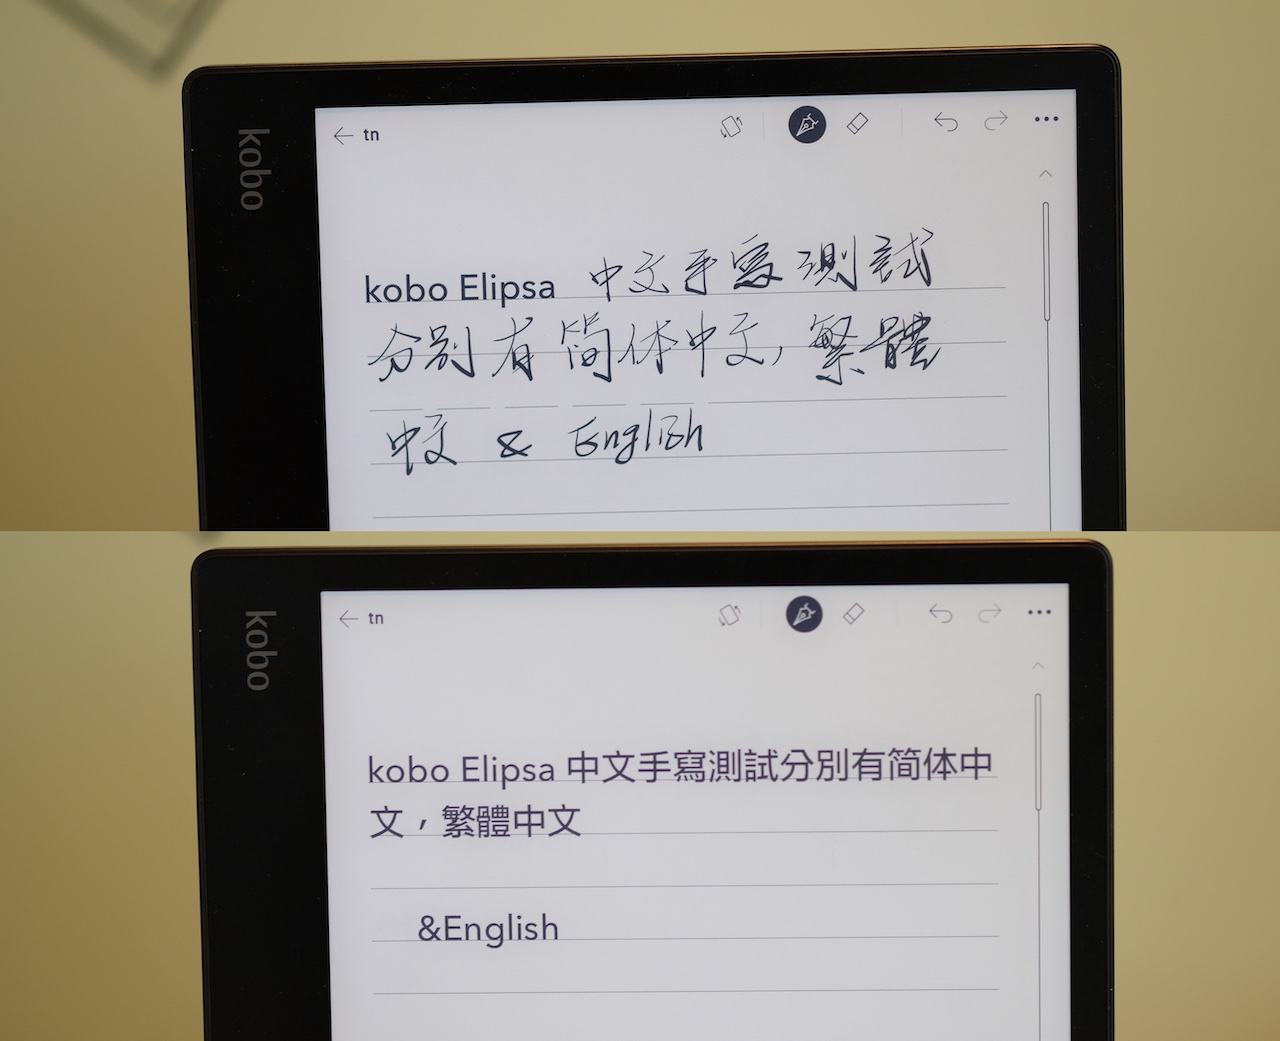 kobo
tn
kobo Elipsa 中文手寫測試
分别有简体中文,繁體
中文 & English
kobo
tn
kobo Elipsa 中文手寫測試分別有简体中
文，繁體中文
&English